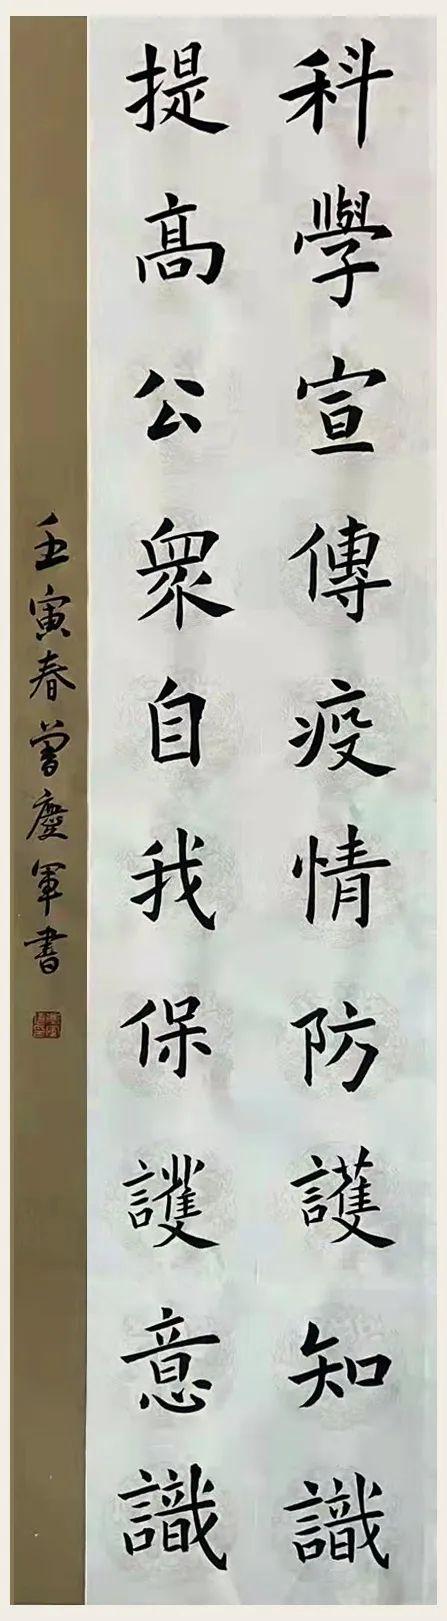 科學宣傳疫情防護知識
提高公眾自我保護意識
壬寅春曾慶軍書